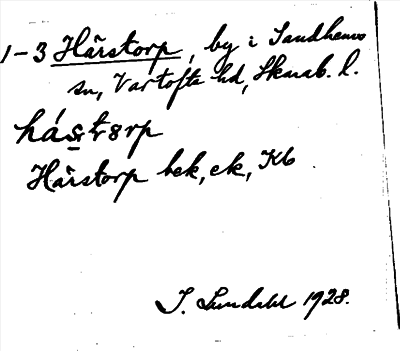 1-3 Hårstorp, by i Sandhems
sn, Vartofta hd, Skarab. l.
hás̠tṣrp
Hårstorp bek, ek, Kb
I. Lundahl 1928.